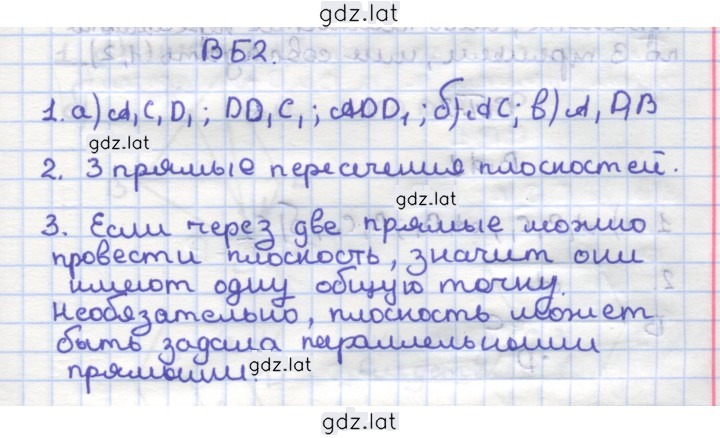 gdz.lat
ВБ2.
1. а) А₁C₁D₁; DD₁C₁; ADD₁; б) AC; в) A₁DB
gdz.lat
2. 3 прямые пересечения плоскостей.
gdz.lat
3. Если через две прямые можно
провести плоскость, значит они
имеют одну общую точку.
Необязательно, плоскость может
быть задана параллельными
прямыми.
gdz.lat
gdz.lat